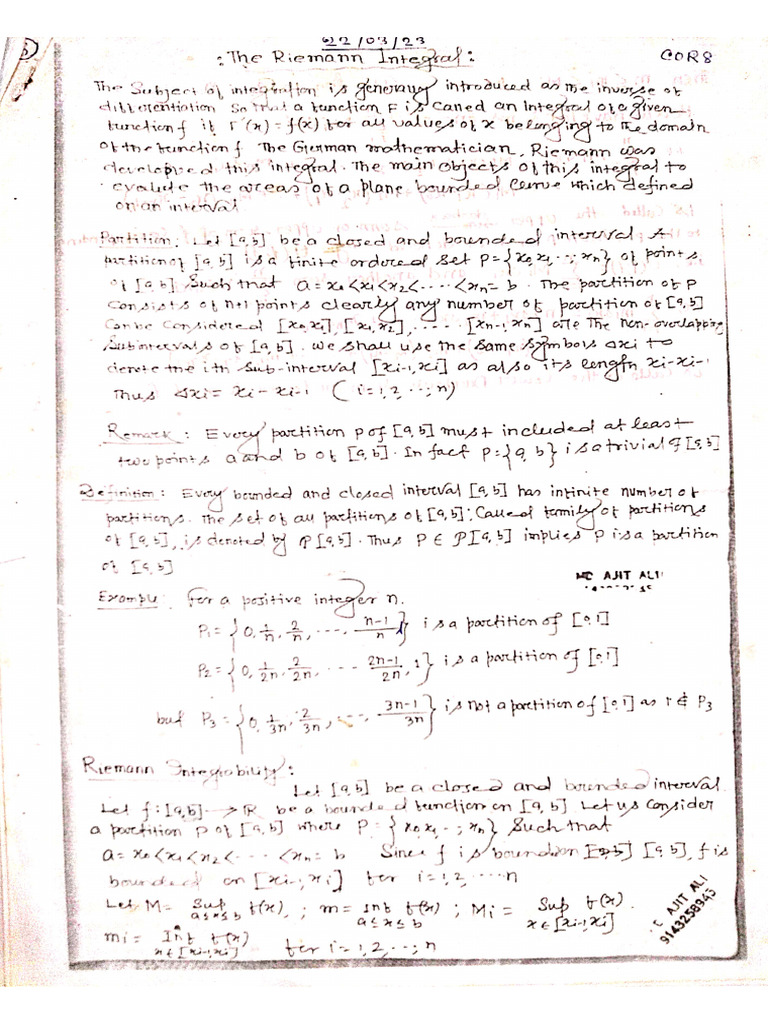 22/03/23
: The Riemann Integral : COR8
The Subject of integration is generally introduced as the inverse of
differentiation So that a function F is called an Integral of a given
function f if F'(x) = f(x) for all values of x belonging to the domain
of the function f The Gierman mathematician, Riemann was
developed this integral. The main objects of this integral to
evalute the areas of a plane bounded curve which defined
on an interval
Partition : Let [a,b] be a closed and bounded interval A
partition of [a,b] is a finite ordered set P = {x0 x1, ··, xn} of points
of [a,b] Such that a = x0 < x1 < x2 < ····· < xn = b . The partition of P
Consists of n+1 points clearly any number of partition of [a,b]
Can be Considered [x0,x1], [x1,x2], ····· [xn-1, xn] are the non-overlapping
Subintervals of [a,b]. we shall use the same symbols Δxi to
denote the ith sub-interval [xi-1, xi] as also its length xi - xi-1
Thus Δxi = xi - xi-1 ( i = 1, 2, ··, n)
Remark : Every partition P of [a,b] must included at least
two points a and b of [a,b]. In fact P = {a, b} is a trivial of [a,b]
Definition : Every bounded and closed interval [a,b] has infinite number of
partitions. The set of all partitions of [a,b], Called family of partitions
of [a,b], is denoted by P[a,b]. Thus P ∈ P[a,b] implies P is a partition
of [a,b]
MD AJIT ALI
Example : For a positive integer n.
P1 = {0, 1/n, 2/n, ···, n-1/n, 1} is a partition of [0,1]
P2 = {0, 1/2n, 2/2n, ··· 2n-1/2n, 1} is a partition of [0,1]
but P3 = {0, 1/3n, 2/3n, ···, 3n-1/3n} is not a partition of [0,1] as 1 ∉ P3
Riemann Integrability :
Let [a,b] be a closed and bounded interval
Let f : [a,b] → R be a bounded function on [a,b] Let us consider
a partition P of [a,b] where P = {x0 x1 ·· ; xn} Such that
a = x0 < x1 < x2 < ···· < xn = b Since f is bound on [a,b], f is
bounded on [xi-1, xi] for i = 1, 2, ···· n
Let M = Sup a≤x≤b f(x), ; m = inf a≤x≤b f(x) ; Mi = Sup x∈[xi-1,xi] f(x).
mi = Inf x∈[xi-1,xi] f(x) for i = 1, 2, ··, n
AJIT ALI
9143258945